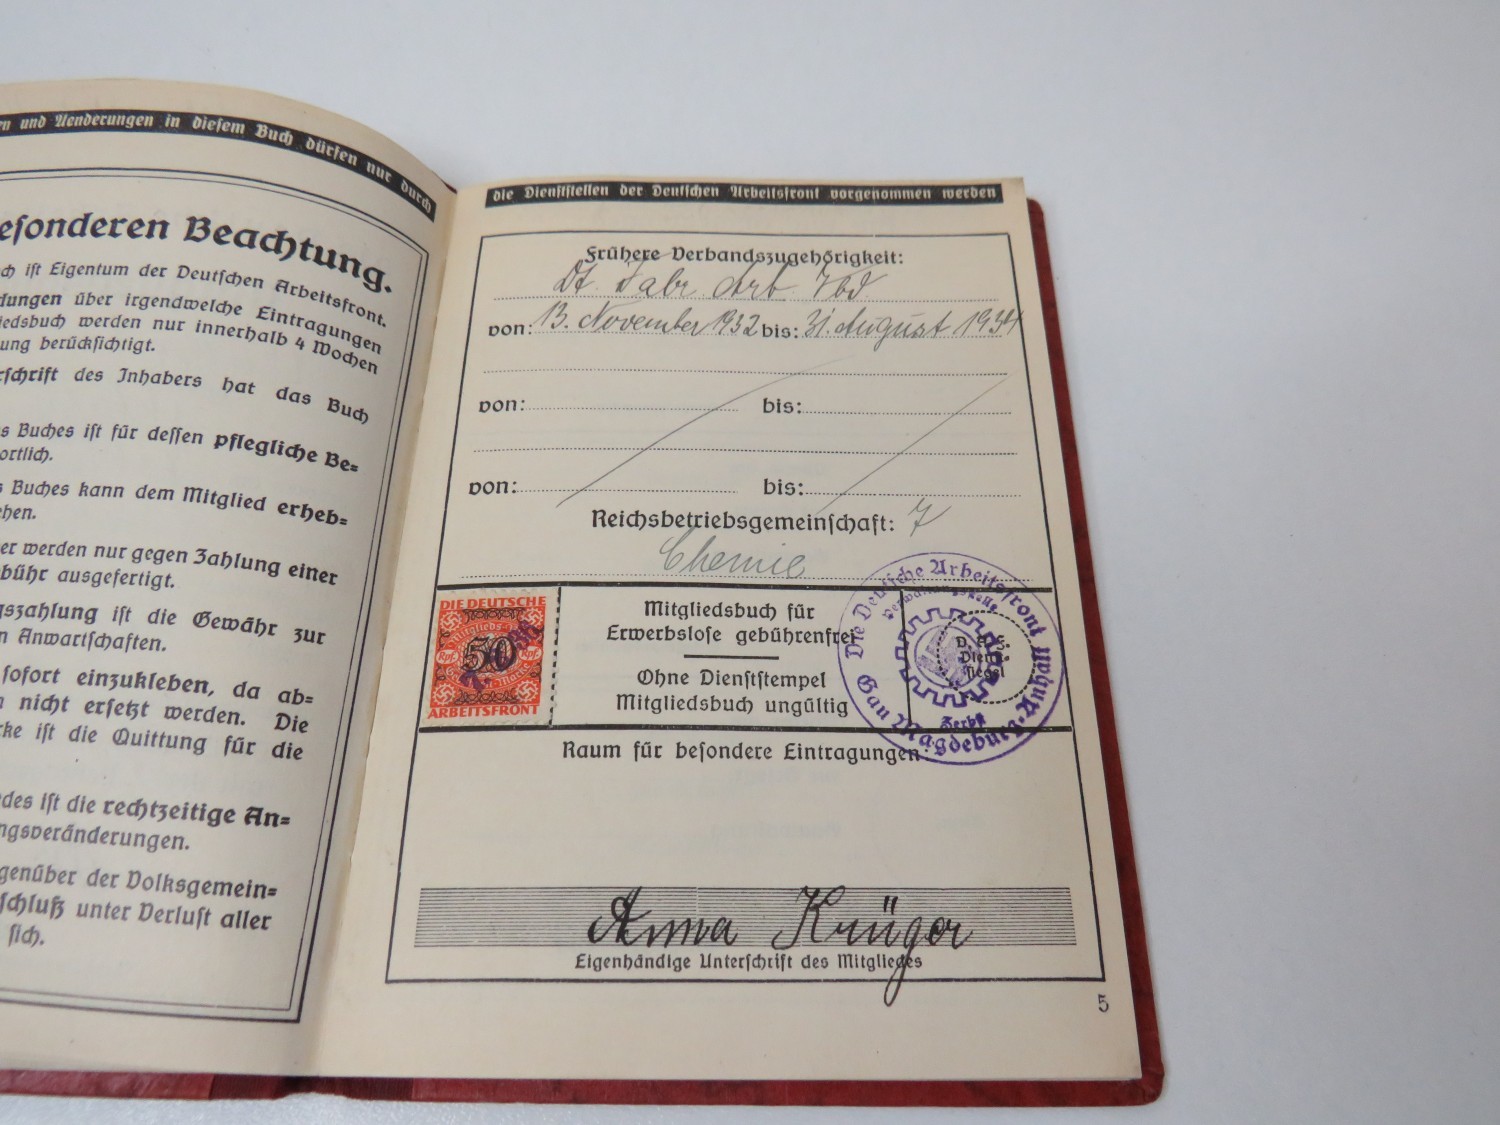 en und Aenderungen in diesem Buch dürfen nur durch
esonderen Beachtung.
ch ist Eigentum der Deutschen Arbeitsfront.
dungen über irgendwelche Eintragungen
iedsbuch werden nur innerhalb 4 Wochen
ung berücksichtigt.
rschrift des Inhabers hat das Buch
s Buches ist für dessen pflegliche Be=
ortlich.
s Buches kann dem Mitglied erheb=
ehen.
er werden nur gegen Zahlung einer
bühr ausgefertigt.
gszahlung ist die Gewähr zur
n Anwartschaften.
sofort einzukleben, da ab=
n nicht ersetzt werden. Die
rke ist die Quittung für die
edes ist die rechtzeitige An=
ngsveränderungen.
genüber der Volksgemein=
schluß unter Verlust aller
sich.
die Dienststellen der Deutschen Arbeitsfront vorgenommen werden
Frühere Verbandszugehörigkeit:
Dt. Fabr Arb Vbd
von: 13. November 1932 bis: 31. August 1934
von: bis:
von: bis:
Reichsbetriebsgemeinschaft: 7
Chemie
DIE DEUTSCHE
Mitglieds-
Rpf. 50 Rpf.
Marke
ARBEITSFRONT
Mitgliedsbuch für
Erwerbslose gebührenfrei
Ohne Dienststempel
Mitgliedsbuch ungültig
D. A. F.
Dienst-
siegel
Die Deutsche Arbeitsfront
Verwaltungsstelle
Zerbst
Gau Magdeburg-Anhalt
Raum für besondere Eintragungen:
Anna Krüger
Eigenhändige Unterschrift des Mitgliedes
5